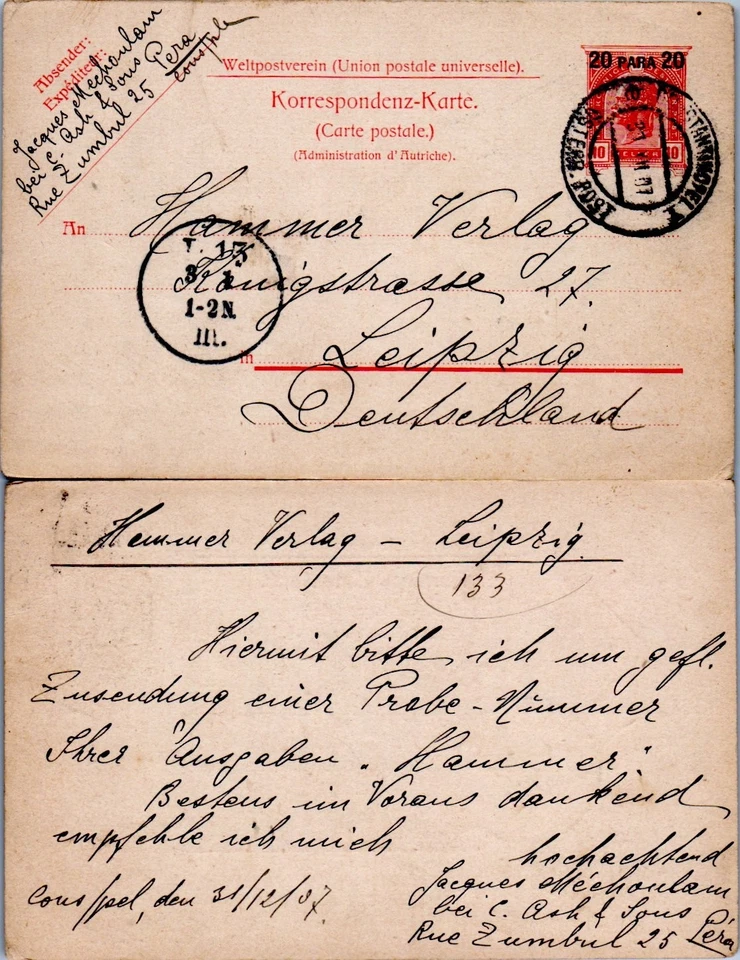 Absender:
Expéditeur:
Jacques Méchoulam
bei C. Ash & Sons Pera
Rue Zumbul 25 Cons/ple
Weltpostverein (Union postale universelle).
Korrespondenz-Karte.
(Carte postale.)
(Administration d'Autriche).
20 PARA 20
10 10
An Hammer Verlag
Königstrasse 27.
in Leipzig
Deutschland
L. 13
3 1
1-2 N.
III.
Hammer Verlag – Leipzig.
133
Hiermit bitte ich um gefl.
Zusendung einer Probe-Nummer
Ihrer Ausgaben „Hammer“.
Bestens im Voraus dankend
empfehle ich mich
hochachtend
Jacques Méchoulam
bei C. Ash & Sons
Rue Zumbul 25 Péra
Cons/pel, den 31/12/07